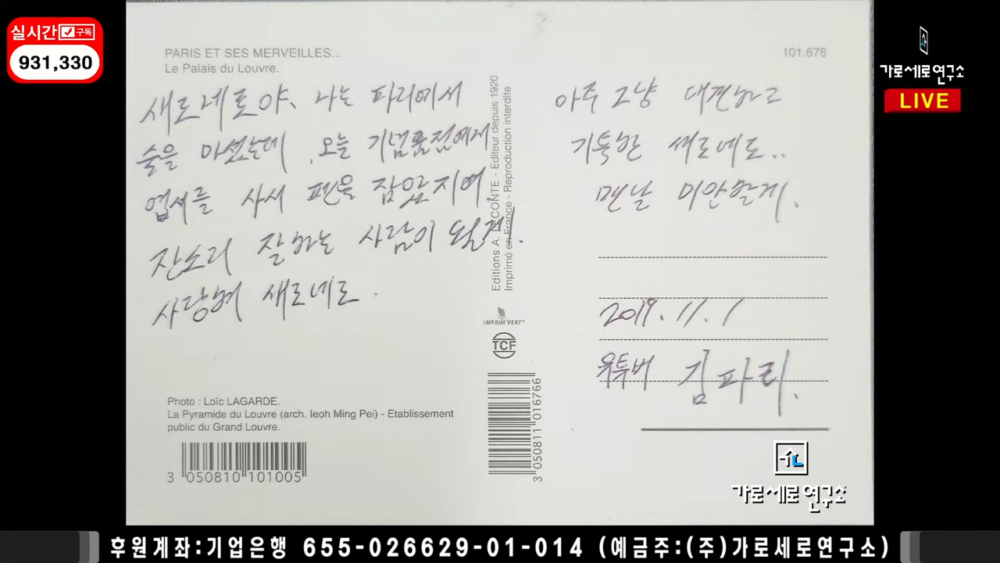 실시간 구독
931,330
가로세로연구소
LIVE
PARIS ET SES MERVEILLES...
Le Palais du Louvre.
101.676
새로네로야, 나는 파리에서
술을 마셨는데, 오늘 기념품점에서
엽서를 사서 펜을 잡았지예.
잔소리 잘하는 사람이 될게.
사랑해 새로네로.
아주 그냥 대견하고
기특한 새로네로..
맨날 미안할게.
2019.11.1
유투버 김파리.
Editions A. CONTE - Editeur depuis 1920
Imprimé en France - Reproduction interdite
IMPRIM'VERT
TCF
Photo : Loïc LAGARDE.
La Pyramide du Louvre (arch. Ieoh Ming Pei) - Etablissement
public du Grand Louvre.
3 050810 101005
3 050811 016766
가로세로연구소
후원계좌:기업은행 655-026629-01-014 (예금주:(주)가로세로연구소)